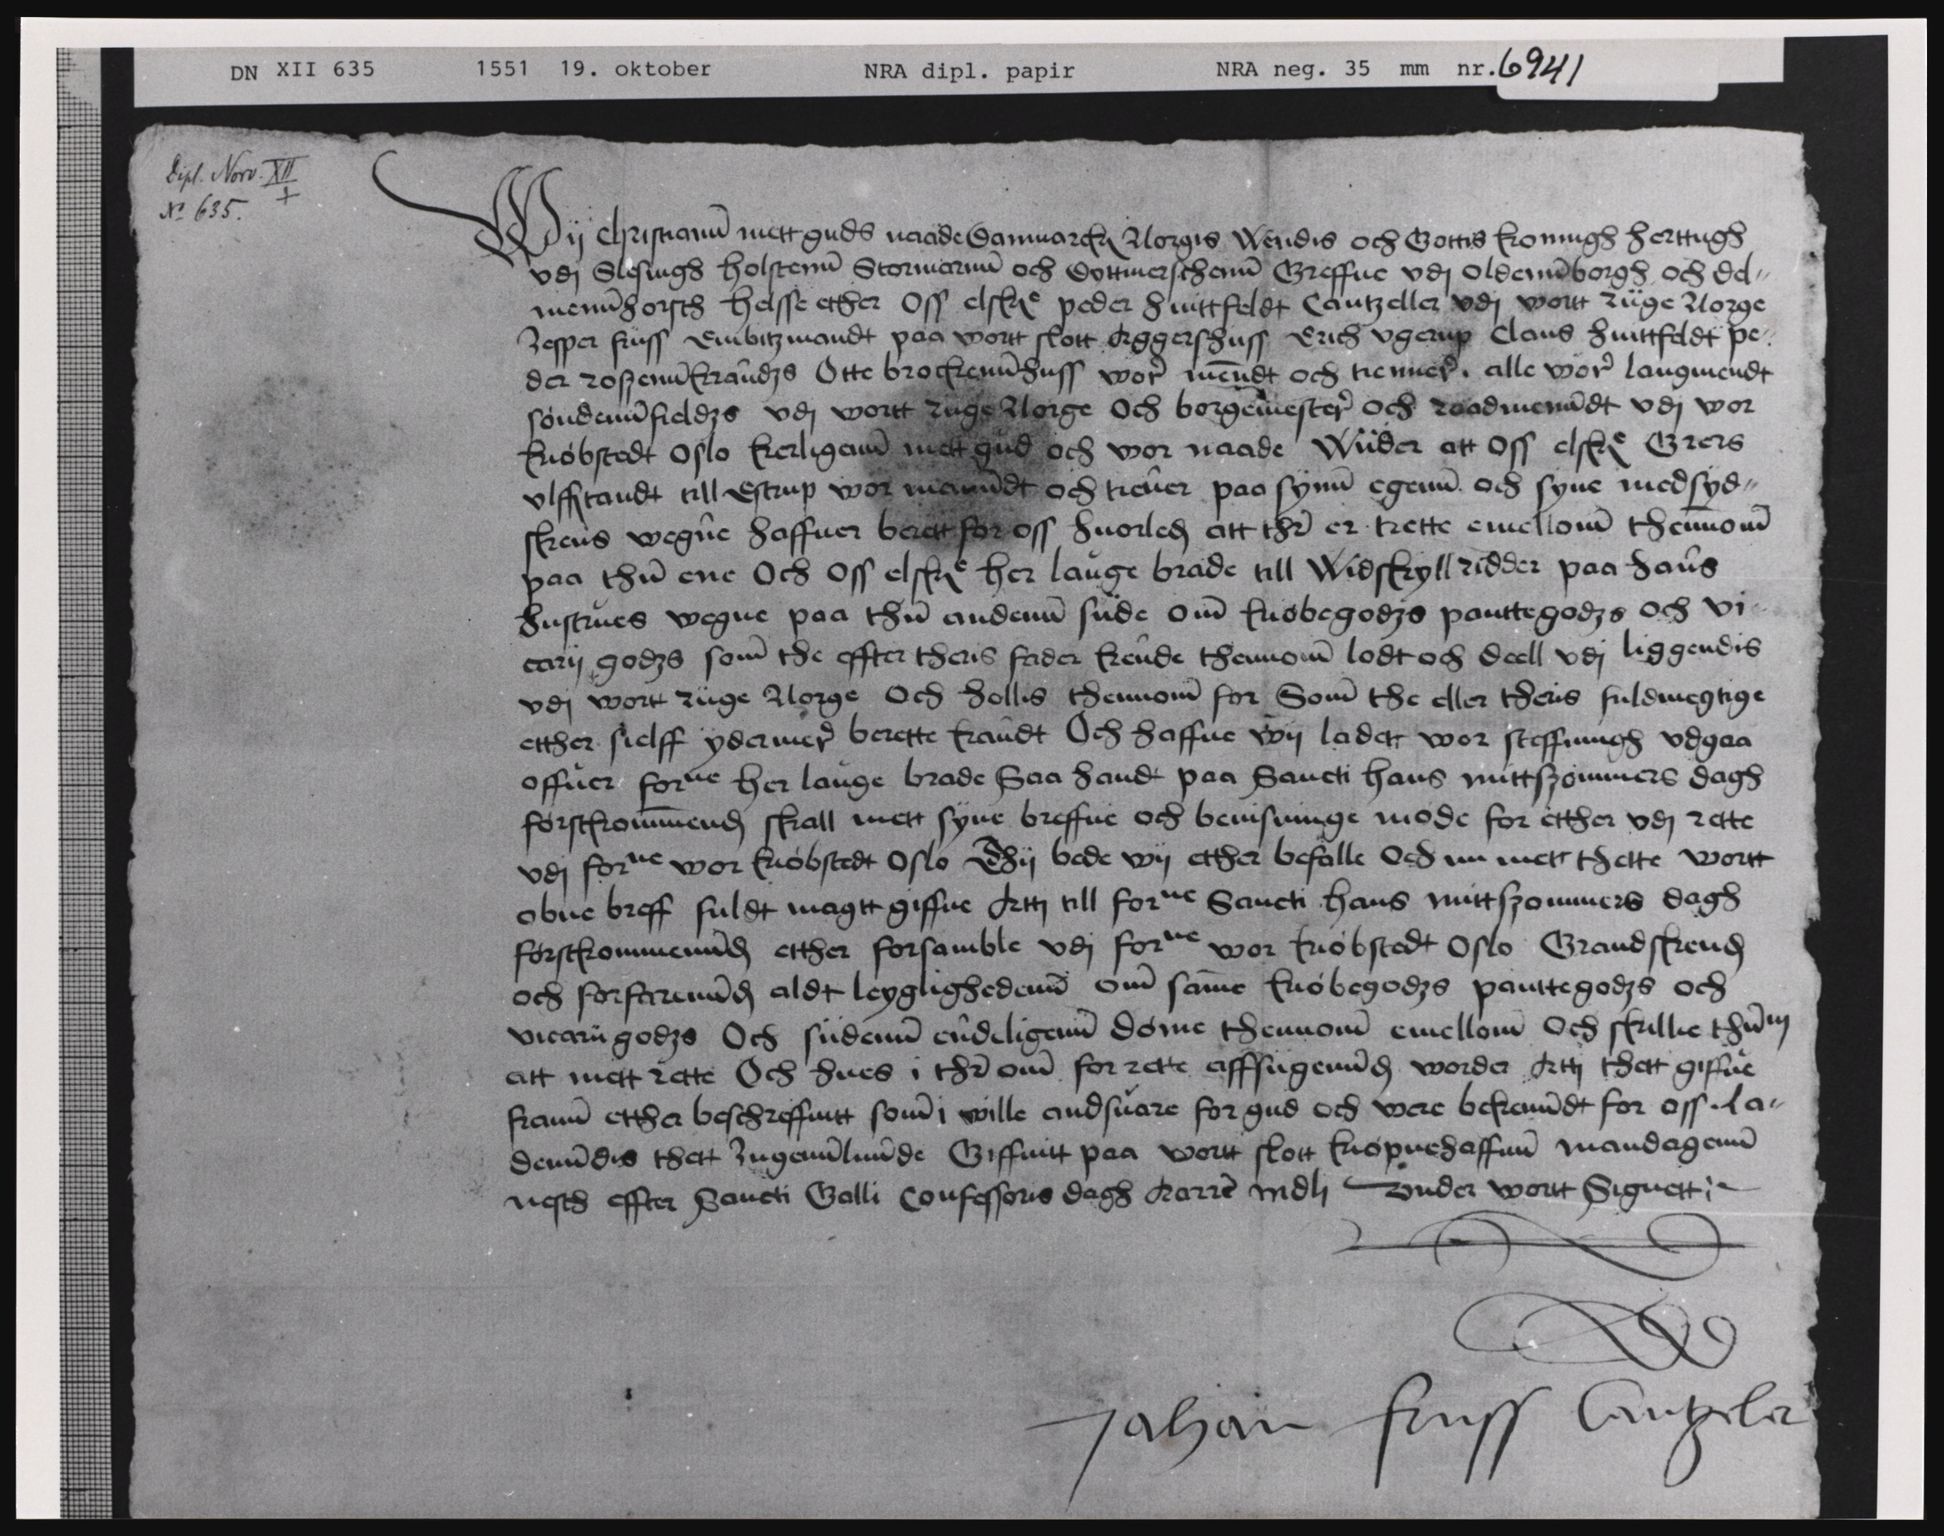 DN XII 635 1551 19. oktober NRA dipl. papir NRA neg. 35 mm nr. 6941
Dipl. Norv. XII
No 635. +
Wij Christiann mett guds naade Danmarcks Norgis Wendis och Gottis konningh herttugh
vdj Slesuigh holstenn Stormarnn och Dyttmerschenn Greffue vdj oldennborgh och del-
mennhorsth helsse ether Oss elske peder huittfeldt Cantzeller vdj wortt Rüge Norge
Jesper friiss Embitzmandt paa wortt slott Aggershuss Erich vgerup Claus huittfeldt pe-
der roszennkrandzs Otte brockennhuss wore mendt och tienner, alle wore laugmendt
søndennfieldzs vdj wortt rüge Norge Och borgemester och raadmenndt vdj wor
kiøbstedt Oslo kerligenn mett gud och wor naade Wüder att oss elske Grers
vlffstandt till Estrup wor menndt och tiener paa synn egenn och syne medsyd-
skens wegne haffuer berett for oss huorledz att thr er trette emellom thennom
paa thn ene Och oss elske her lauge brade till Widskyll ridder paa hans
hustrues wegne paa thn andenn süde om kiøbegodzs panttegodzs och vi-
carij godzs som the effter theris fader kende thennom lodt och deell vdj liggendis
vdj wortt rüge Norge Och hollis thennom for Som the eller theris fuldmegtige
etther sielff ydermer berette kandt Och haffue wij ladett wor steffningh vdgaa
offuer forne her lauge brade Saa handt paa Sancti hans mittszommers dagh
førstkommendz skall mett syne breffue och beuisninge møde for etther vdj rette
vdj forne wor kiøbstedt Oslo Thij bede wij ether befalle Och nu mett thette wortt
obne breff fuldt magtt giffue Atti till forne Sancti hans mittszommers dagh
førstkommenndz etther forsamble vdj forne wor kiøbstedt Oslo Grandskendz
och forfarenndz aldt leyglighedenn om same kiøbegodzs panttegodzs och
vicarij godzs Och südenn endeligenn dome thennom emellom Och skillie thnm
att mett rette Och hues i thr om for rette affsigenndz worder Atti thett giffue
frann etther beschreffuitt som i wille andsuare for gud och were bekenndt for oss. la-
denndis thett Jngennlunde Giffuitt paa wortt slott kiøpnehaffnn mandagenn
nesth effter Sancti Galli Confessoris dagh Aarre mdlj Wnder wortt Signett
Johan friiss Cantzeler